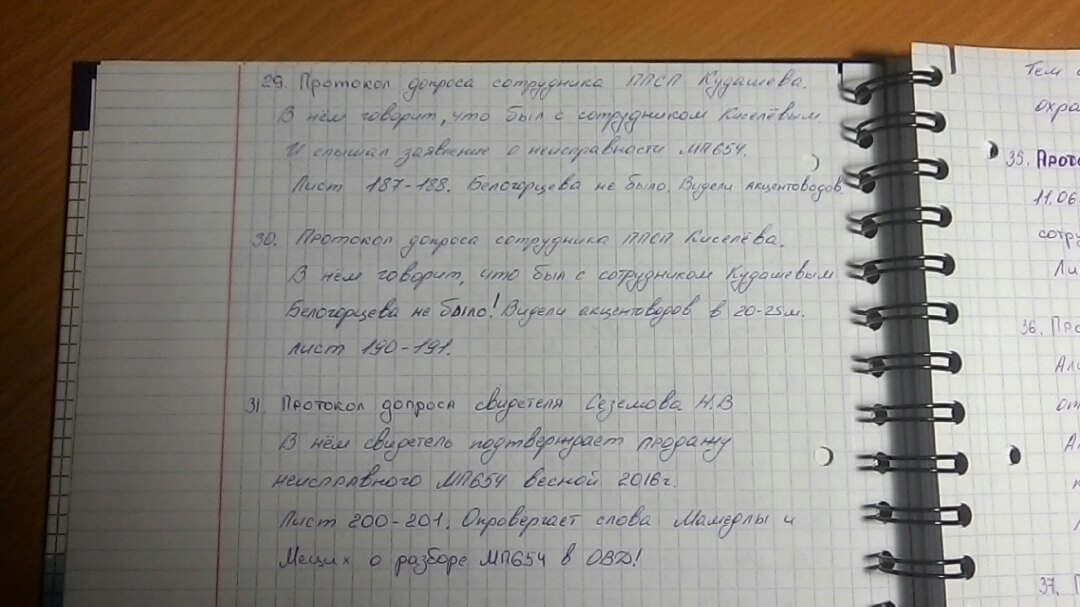 29. Протокол допроса сотрудника ППСП Кудашева.
В нём говорит, что был с сотрудником Киселёвым
И слышал заявление о неисправности МП654.
Лист 187-188. Белогорцева не было. Видели акцентоводов.
30. Протокол допроса сотрудника ППСП Киселёва.
В нём говорит, что был с сотрудником Кудашевым
Белогорцева не было! Видели акцентоводов в 20-25м.
Лист 190-191.
31. Протокол допроса свидетеля Сеземова Н.В
В нём свидетель подтверждает продажу
неисправного МП654 весной 2016г.
Лист 200-201. Опровергает слова Мамедлы и
Мещих о разборе МП654 в ОВД!
Тем
охра
35. Прото
11.06
сотру
Ли
36. Про
Али
от
А
к
37. П